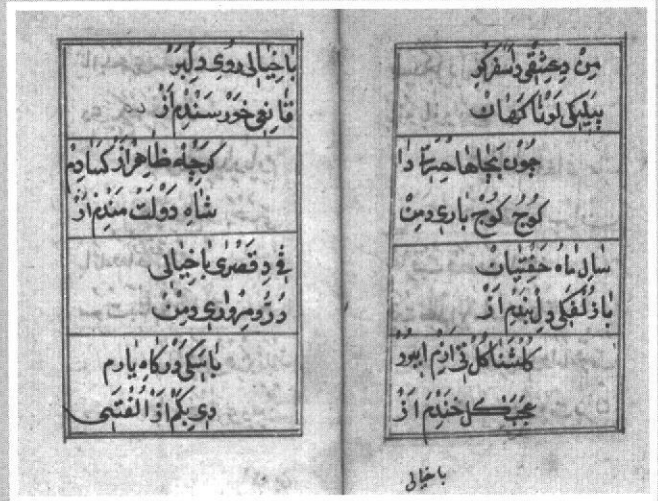 من دعشقی دا سفر کر
پیلیکی لوتا کمهات
چون بجاها حبرتا دا
کوج کوج باری دمن
سال ماه حفتیات
باذلفکی دل بندم از
کلشنا کل فی ازم ایبرو
عجب کل خندم از
با خیالی
با خیالی روی دلبر
قانعی خورسندم از
کرچه ظاهر از کدادم
شاه دولت مندم از
فی دقصری باخیالی
در و مرواری دمن
باسکی درکاه یارم
دی بکم از الفتی